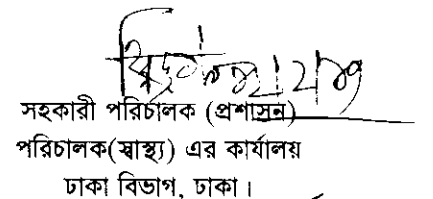 সহকারী পরিচালক (প্রশাসন)
পরিচালক(স্বাস্থ্য) এর কার্যালয়
ঢাকা বিভাগ, ঢাকা।